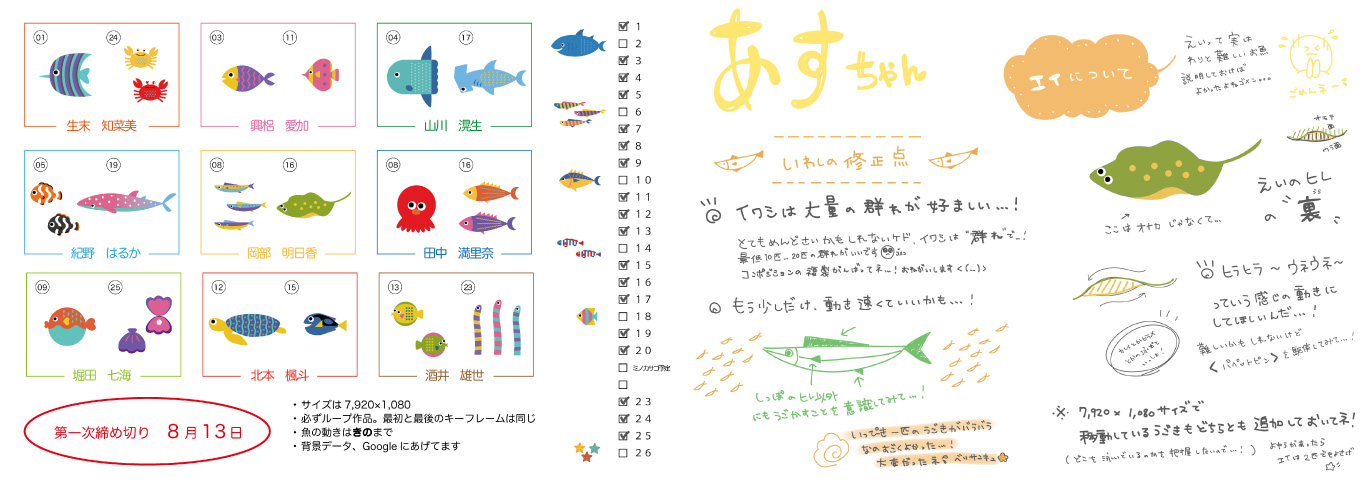 01 24
生末 知菜美
03 11
興梠 愛加
04 17
山川 滉生
05 19
紀野 はるか
08 16
岡部 明日香
08 16
田中 満里奈
09 25
堀田 七海
12 15
北本 楓斗
13 23
酒井 雄世
第一次締め切り 8月13日
・サイズは 7,920×1,080
・必ずループ作品。最初と最後のキーフレームは同じ
・魚の動きはきのまで
・背景データ、Google にあげてます
1
2
3
4
5
6
7
8
9
10
11
12
13
14
15
16
17
18
19
20
ミノカサゴ予定
23
24
25
26
あすちゃん
いわしの修正点
イワシは大量の群れが好ましい…!
とてもめんどさいかもしれないケド、イワシは"群れ"で…!
最低10匹…20匹の群れがいいです
コンポジションの複製がんばってネ…!おねがいします<(__)>
もう少しだけ、動き速くていいかも…!
しっぽのヒレ以外
にもうごかすことを意識してみて…!
いっぴき一匹のうごきがバラバラ
なのすごくよかった…!
大変だったネ?
エイについて
えいって実は
わりと難しいお魚
説明しておけば
よかったよねゴメン…
ごめんネ〜
オモテ面
のう面
ここはオナカじゃなくて…
えいのヒレ
の"裏"
ヒラヒラ〜ウネウネ〜
っていう感じの動きに
してほしいんだ…!
難しいかもしれないけど
<パペットピン>を駆使してみて…!
※ 7,920×1,080サイズで
移動しているうごきもどちらとも追加しておいてネ!
(どこも泳いでいるのかを把握したいので…!)
よゆうがあったら
エイは2匹でもよさげ